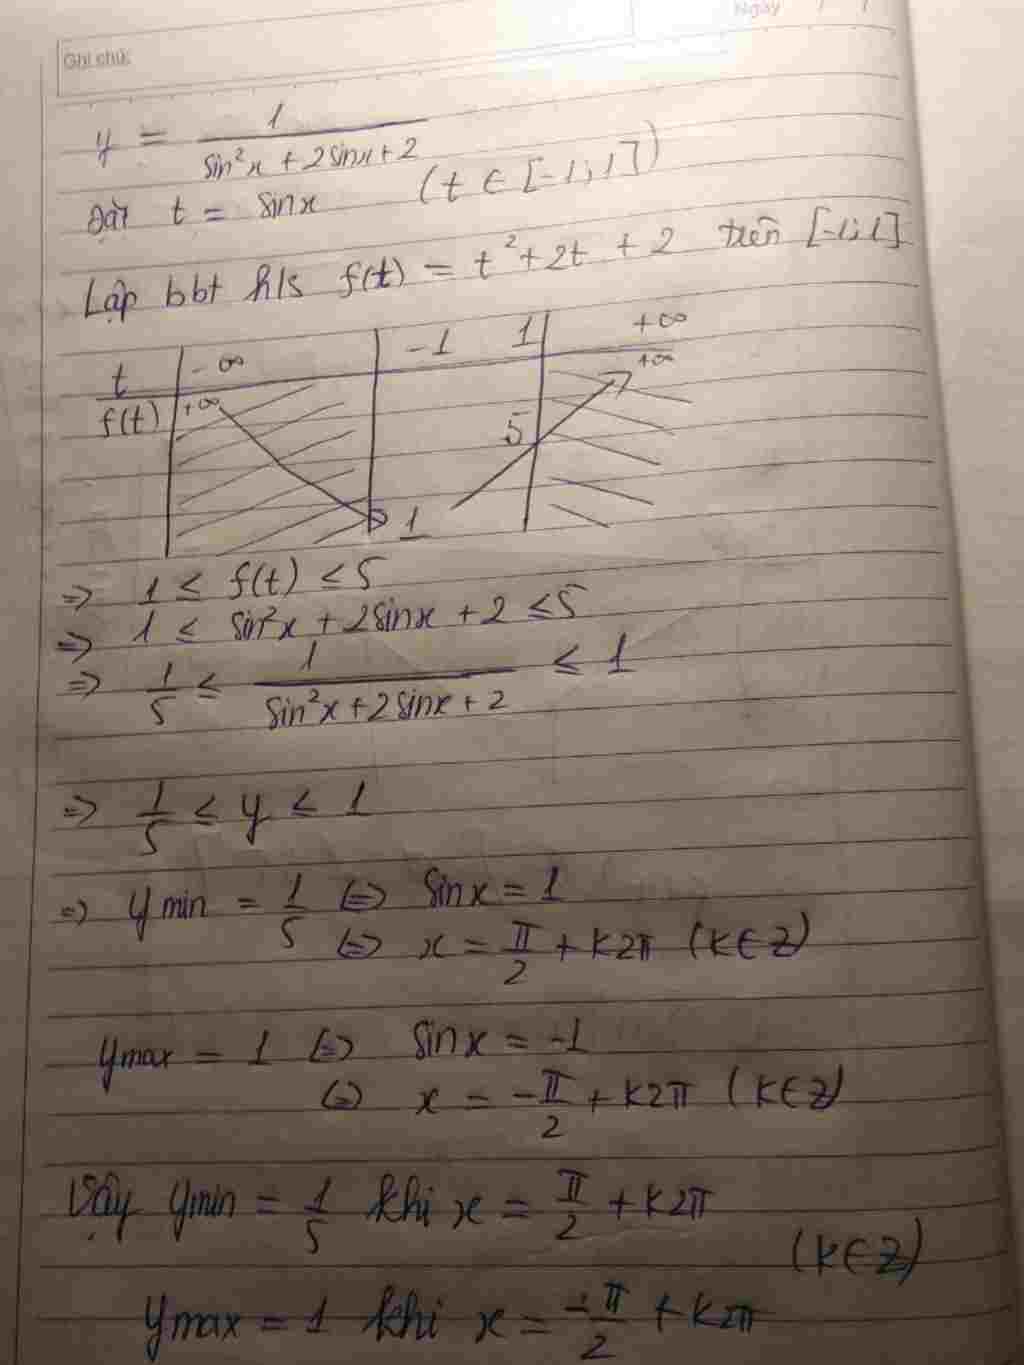 Ngày / /
Ghi chú:
y = 1/(sin²x + 2sinx + 2)
Đặt t = sinx (t ∈ [-1;1])
Lập bbt h/s f(t) = t² + 2t + 2 trên [-1;1]
t -∞ -1 1 +∞
f(t) +∞ 1 5 +∞
=> 1 ≤ f(t) ≤ 5
=> 1 ≤ sin²x + 2sinx + 2 ≤ 5
=> 1/5 ≤ 1/(sin²x + 2sinx + 2) ≤ 1
=> 1/5 ≤ y ≤ 1
=> ymin = 1/5 <=> sinx = 1
<=> x = π/2 + k2π (k∈Z)
ymax = 1 <=> sinx = -1
<=> x = -π/2 + k2π (k∈Z)
Vậy ymin = 1/5 khi x = π/2 + k2π
(k∈Z)
ymax = 1 khi x = -π/2 + k2π